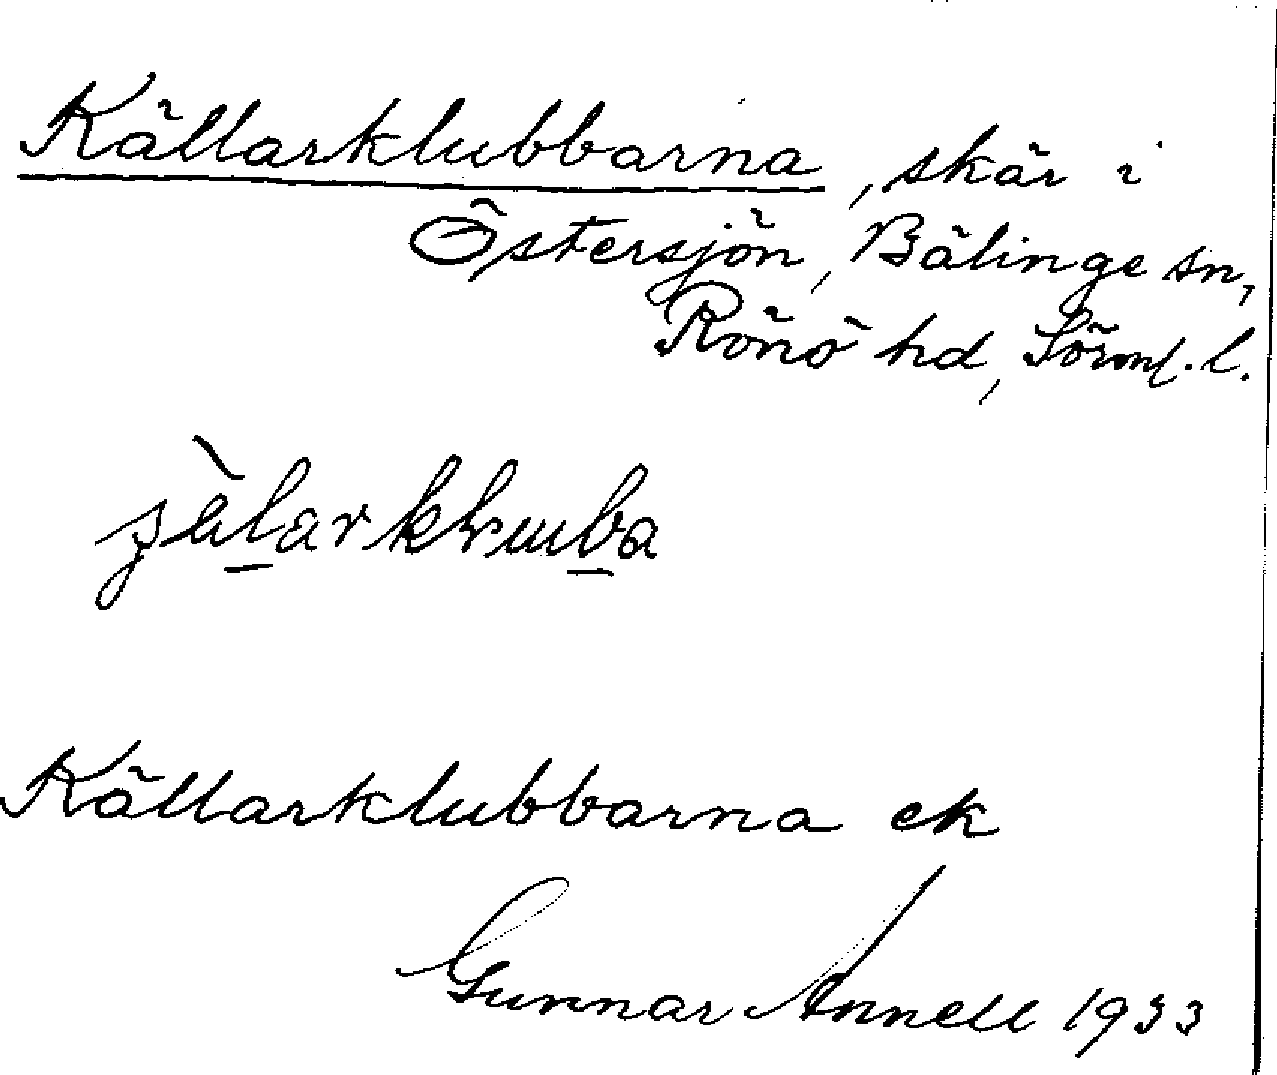 Källarklubbarna, skär i
Östersjön, Bälinge sn,
Rönö hd, Sörml. l.
Källarklubbarna ek
Gunnar Annell 1933